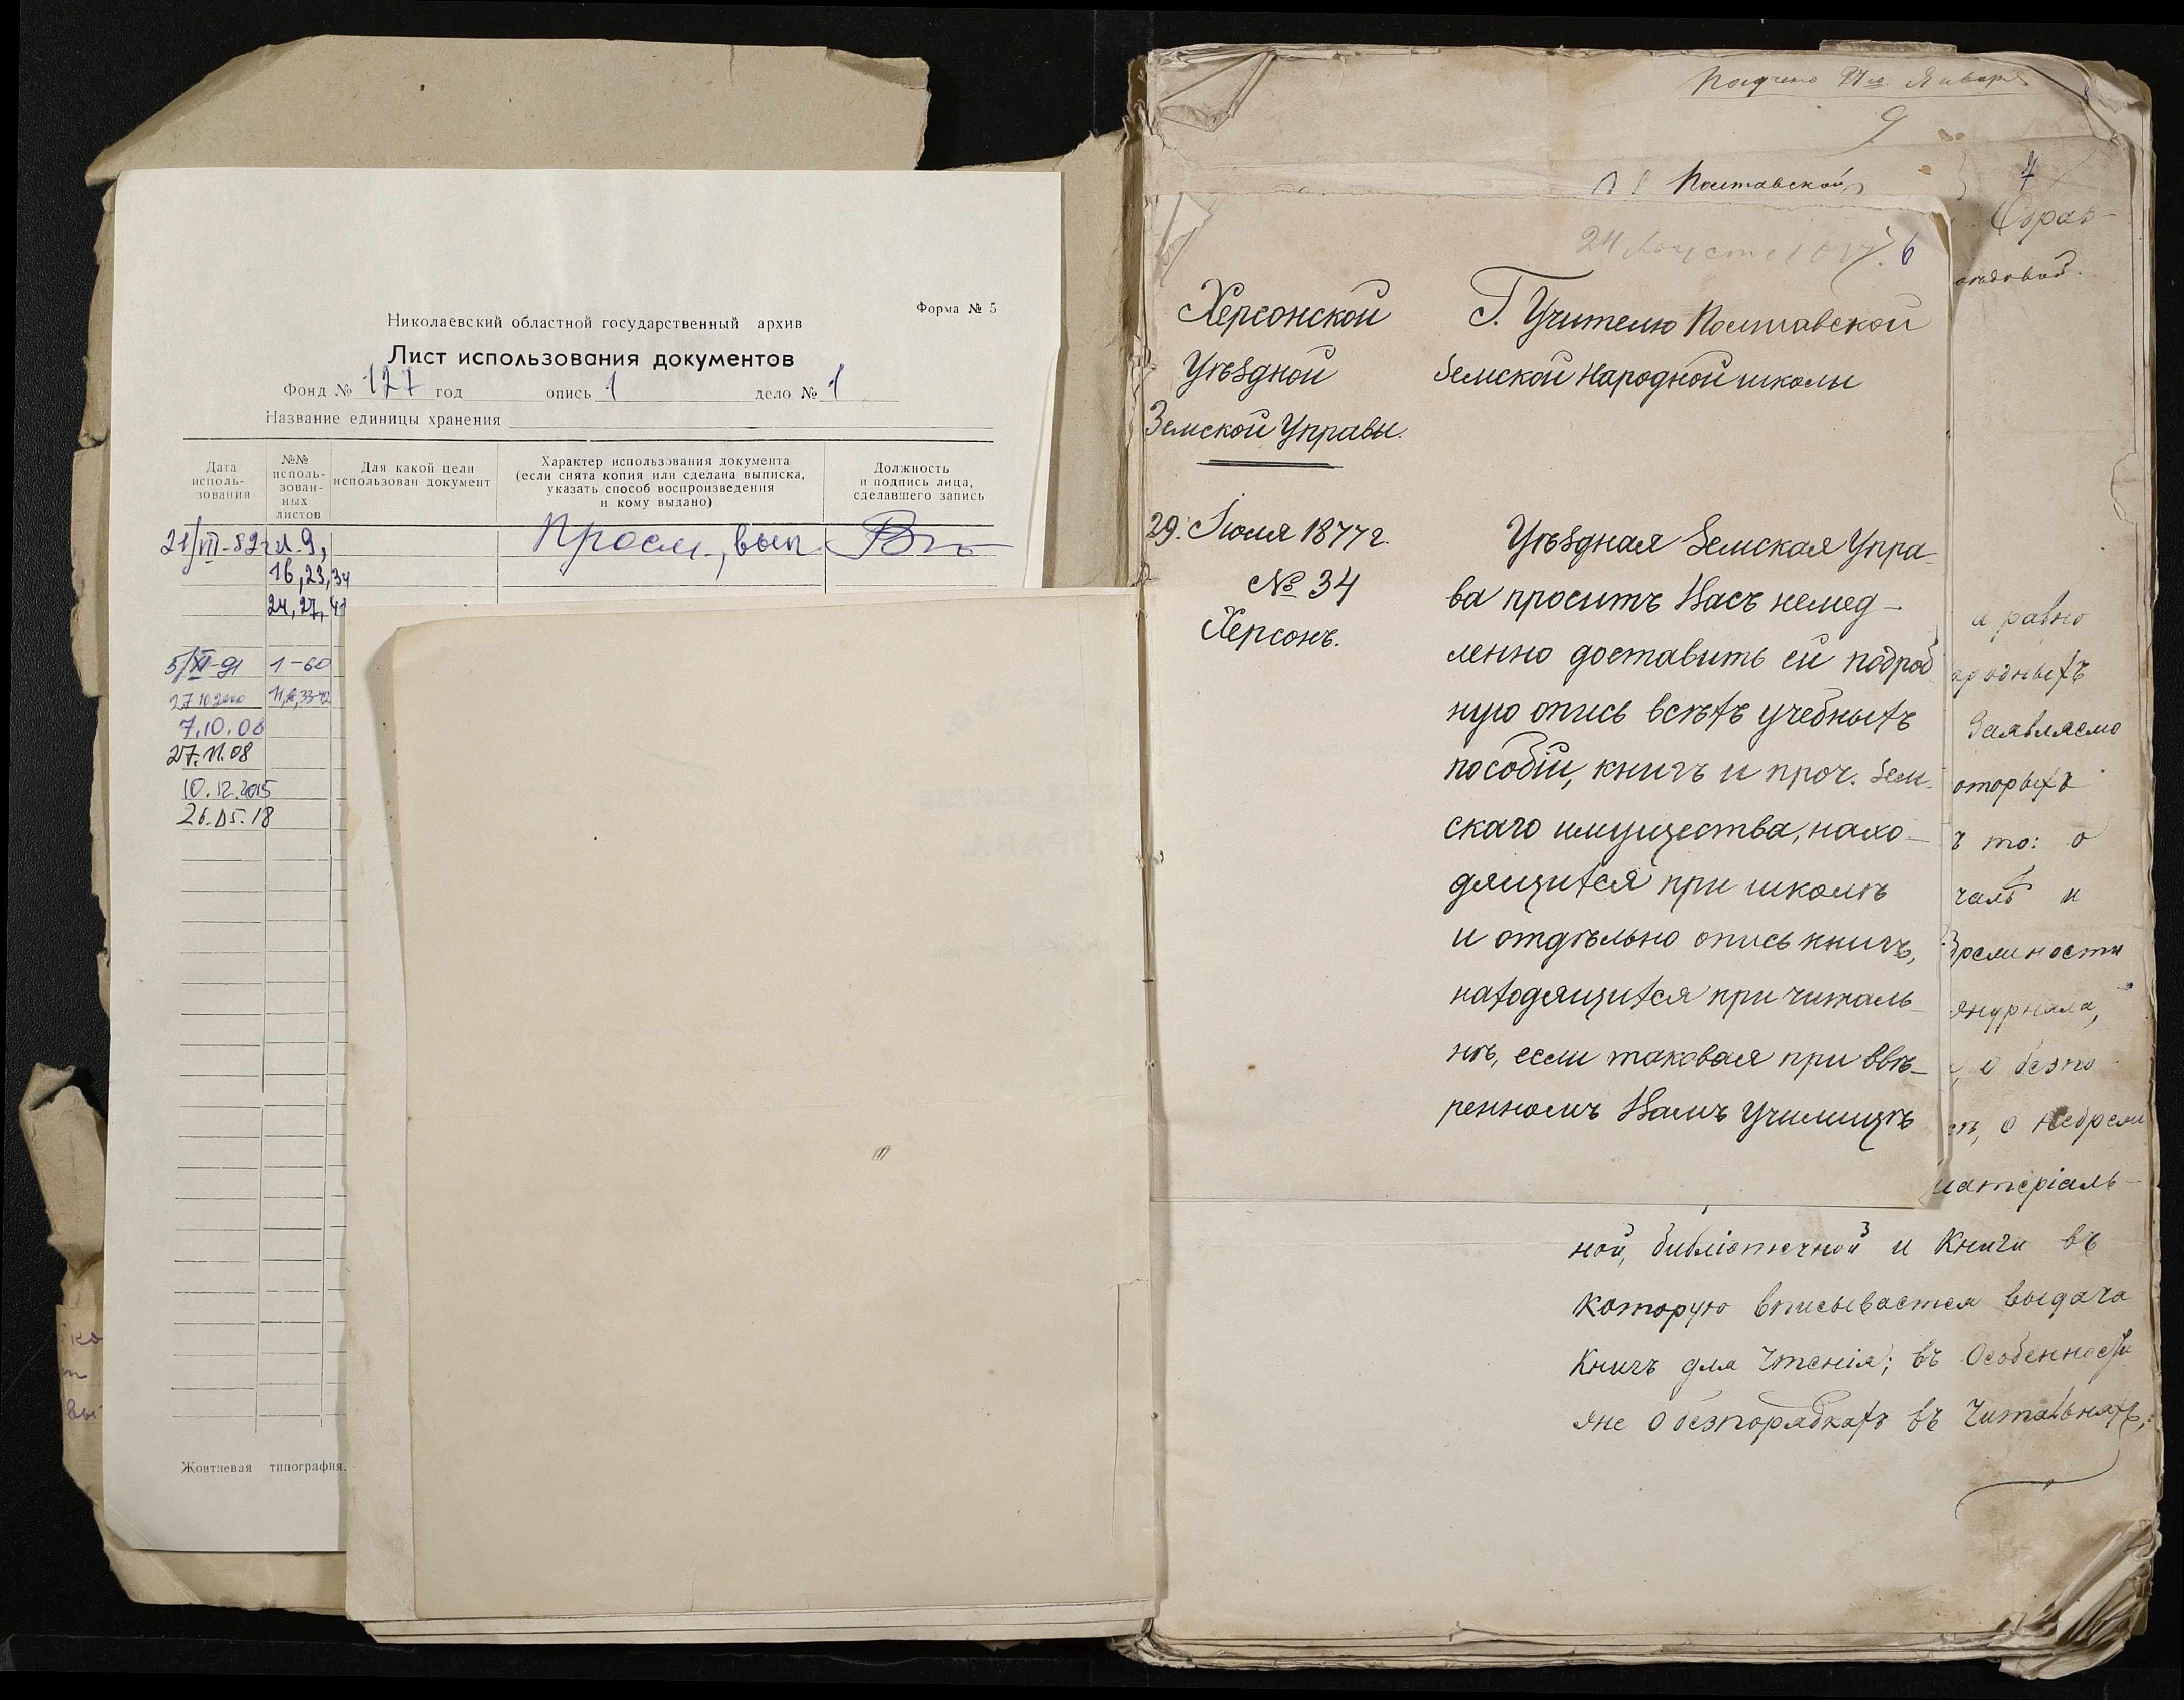 Форма № 5
Николаевский областной государственный архив
Лист использования документов
Фонд № 127 год опись 1 дело № 1
Название единицы хранения
Дата исполь-зования
№№ исполь-зован-ных листов
Для какой цели использован документ
Характер использования документа (если снята копия или сделана выписка, указать способ воспроизведения и кому выдано)
Должность и подпись лица, сделавшего запись
21/VII-82 г. л. 9, Просм., вып
16, 23, 34
24, 27, 41
5/XI-91 1-60
27.10.2000
7.10.08
27.11.08
10.12.2015
26.05.18
Жовтневая типография.
ко
вы
Января
9
Полтавской
7
6
Херсонской
Уѣздной
Земской Управы.
29. Іюля 1877 г.
№ 34
Херсонъ.
Г. Учителю Полтавской
Земской Народной школы
Уѣздная Земская Упра-
ва проситъ Васъ немед-
ленно доставить ей подроб
ную опись всѣхъ учебныхъ
пособій, книгъ и проч. Зем-
скаго имущества, нахо-
дящихся при школѣ
и отдѣльно опись книгъ,
находящихся при читаль-
нѣ, если таковая при ввѣ-
ренномъ Вамъ Училищѣ
а равно
ародныхъ
Заявляемо
оторыхъ
ъ то: о
чалѣ и
журнала,
, о безпо
материіаль-
ной, библіотечной и Книги въ
которую вписывается выдача
Книгъ для Чтенія; въ Особенности
же о безпорядкахъ въ Читальняхъ,